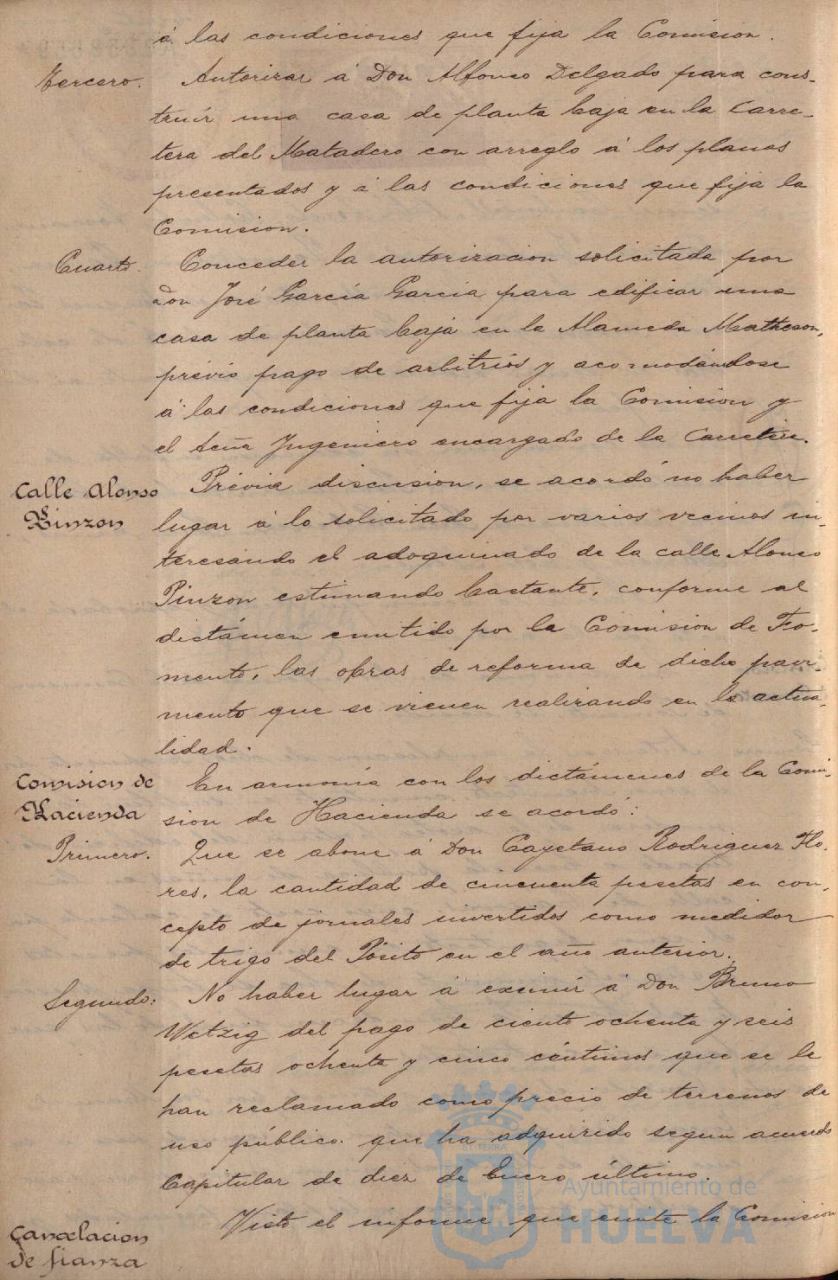 á las condiciones que fija la Comision.
Tercero. Autorizar á Don Alfonso Delgado para cons-
truir una casa de planta baja en la Carre-
tera del Matadero con arreglo á los planos
presentados y á las condiciones que fija la
Comision.
Cuarto. Conceder la autorizacion solicitada por
Don José García García para edificar una
casa de planta baja en la Alameda Matheson,
prévio pago de arbitrios y acomodándose
á las condiciones que fija la Comision y
el Ingeniero encargado de la Carretera.
Calle Alonso
Pinzon
Prévia discusion, se acordó no haber
lugar á lo solicitado por varios vecinos in-
teresando el adoquinado de la calle Alonso
Pinzon estimando bastante, conforme al
dictámen emitido por la Comision de Fo-
mento, las obras de reforma de dicho pavi-
mento que se vienen realizando en la actua-
lidad.
Comision de
Hacienda
En armonía con los dictámenes de la Comi-
sion de Hacienda se acordó:
Primero. Que se abone á Don Cayetano Rodriguez Flo-
res, la cantidad de cincuenta pesetas en con-
cepto de jornales invertidos como medidor
de trigo del Pósito en el año anterior.
Segundo: No haber lugar á eximir á Don Bruno
Wetzig del pago de ciento ochenta y seis
pesetas ochenta y cinco céntimos que se le
han reclamado como precio de terrenos de
uso público que ha adquirido segun acuerdo
Capitular de diez de Enero último.
Cancelacion
de fianza
Visto el informe que emite la Comision
Ayuntamiento de
HUELVA